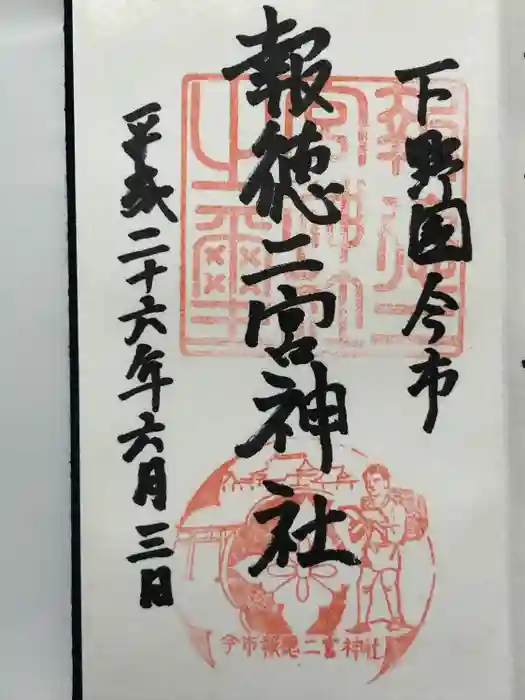 下野国今市
報徳二宮神社
平成二十六年六月三日
報徳二
宮神社
之璽
今市報徳二宮神社